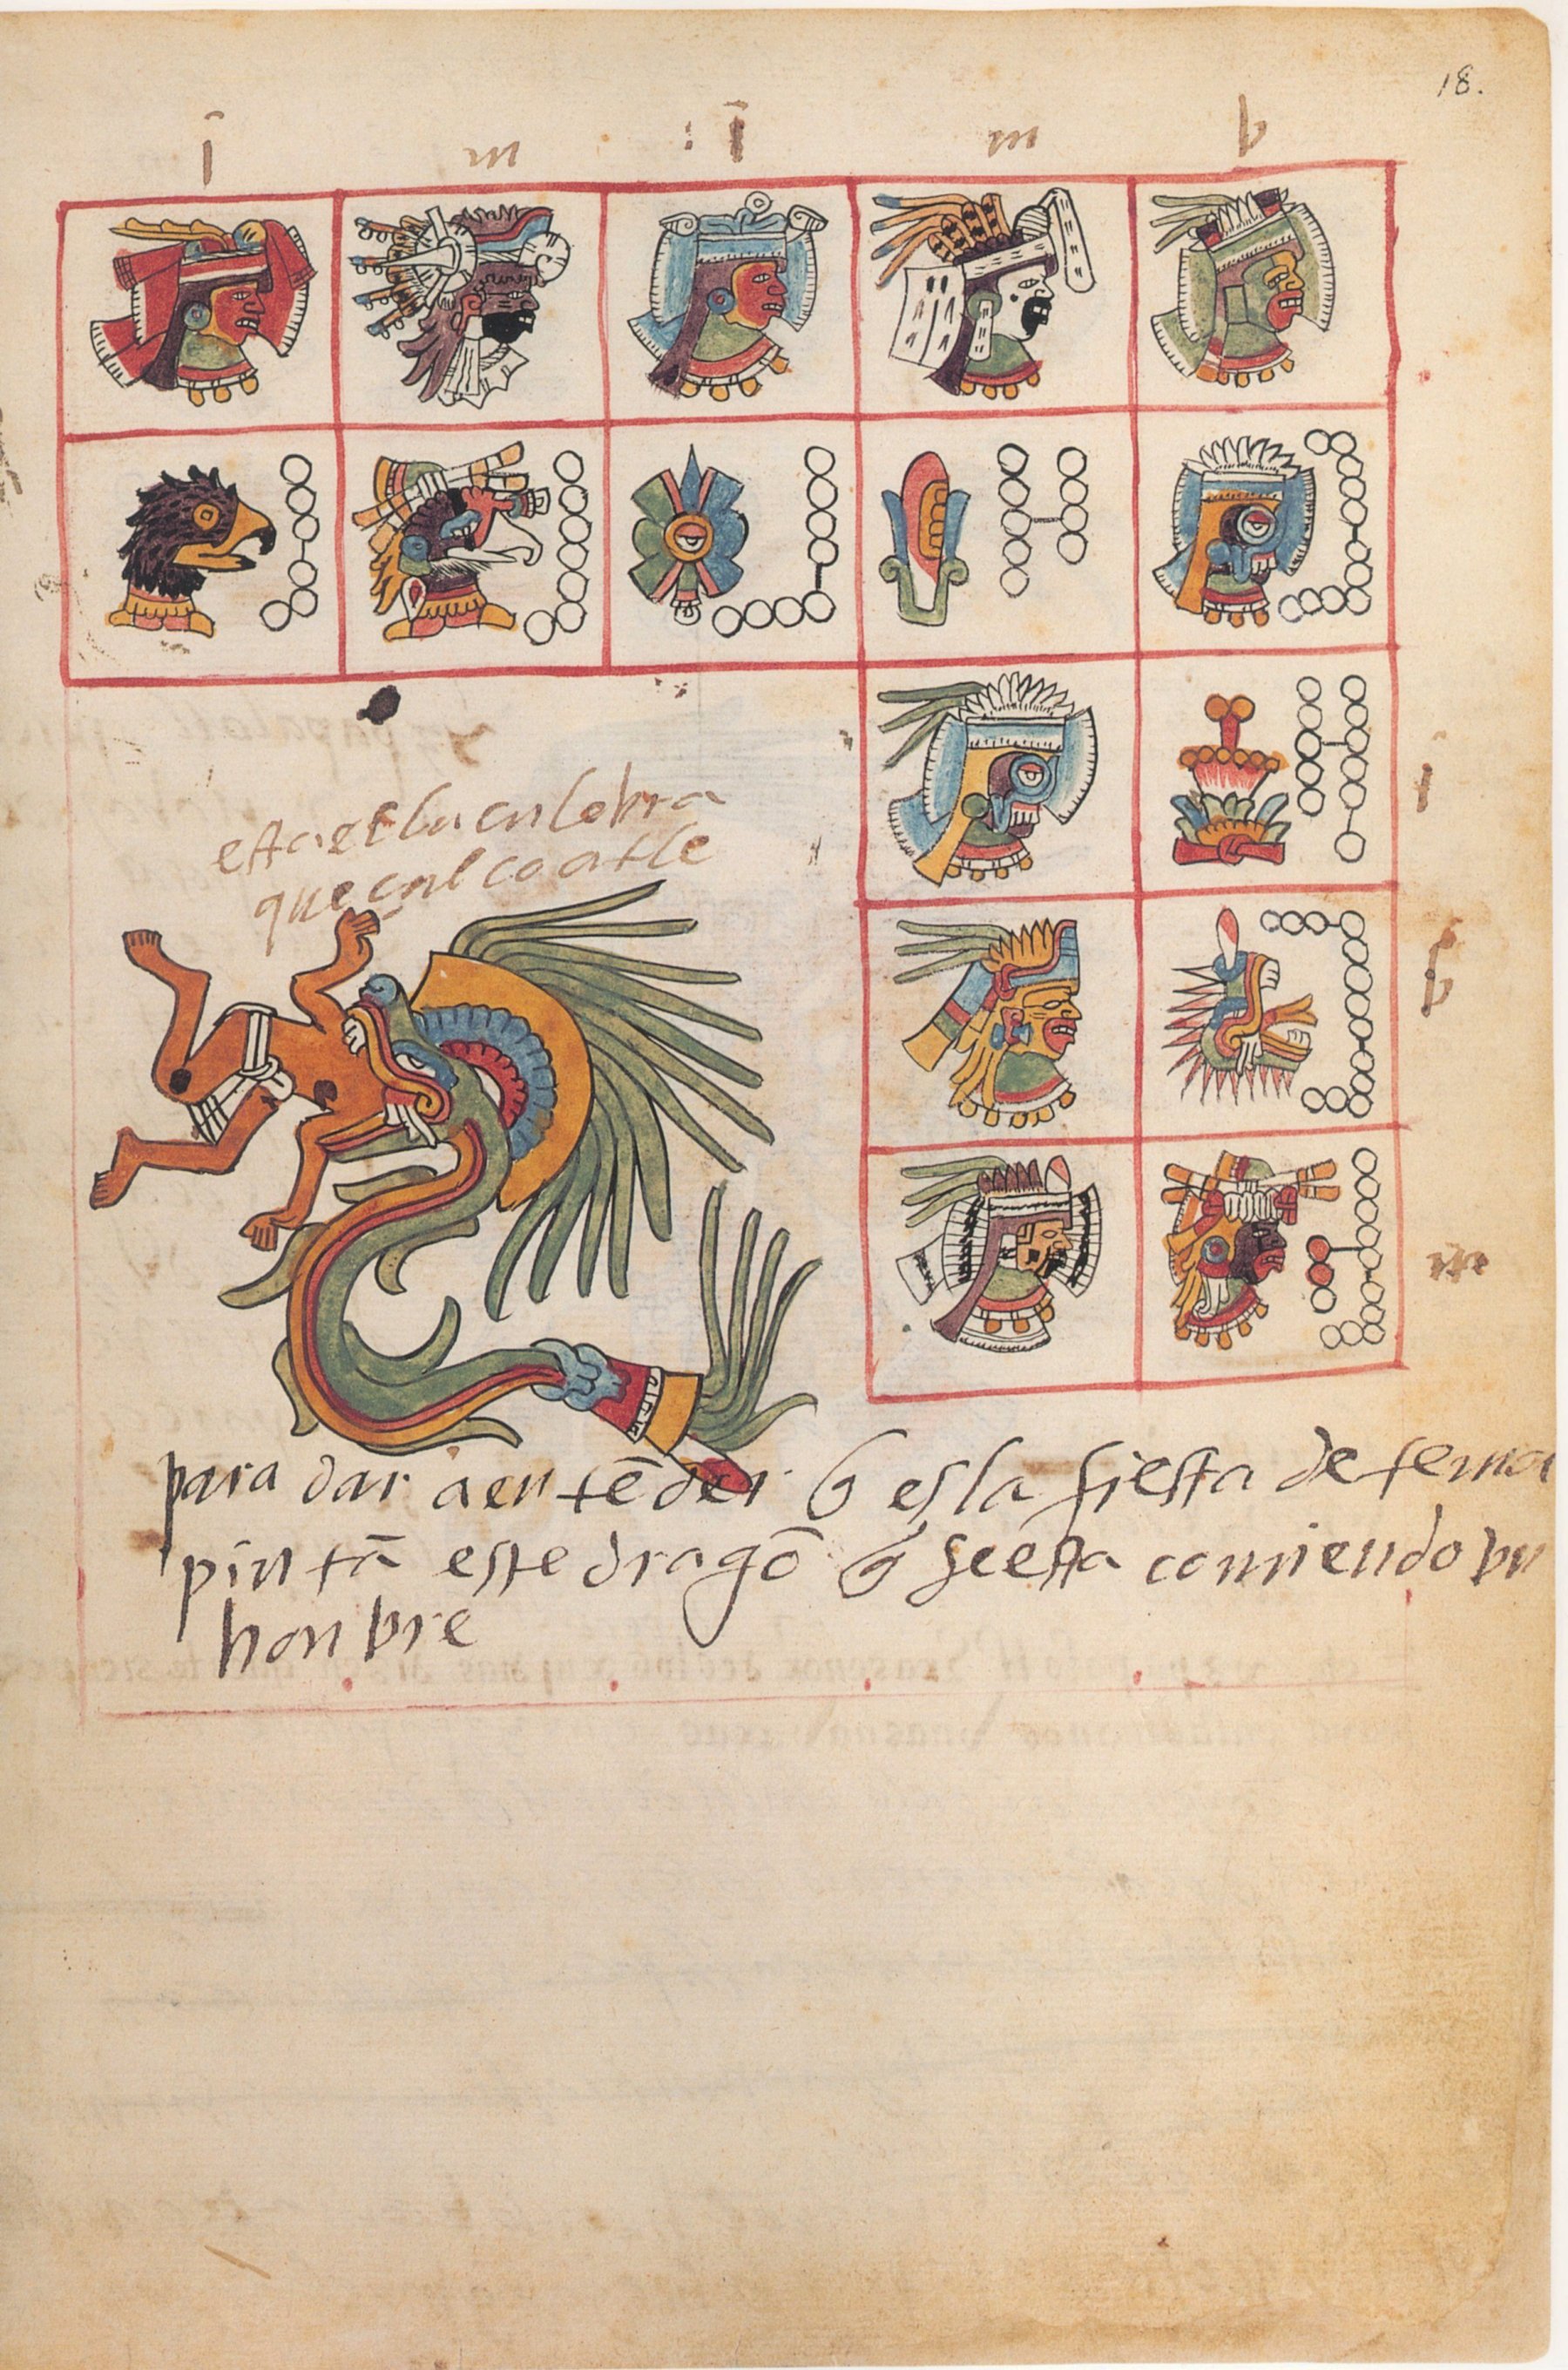 18.
ī m ī m b
esta es la culebra
queçalcoatle
j
b
m
para dar a entēder q̃ es la fiesta de temor
pintā este dragō q̃ se esta comiendo vn
honbre